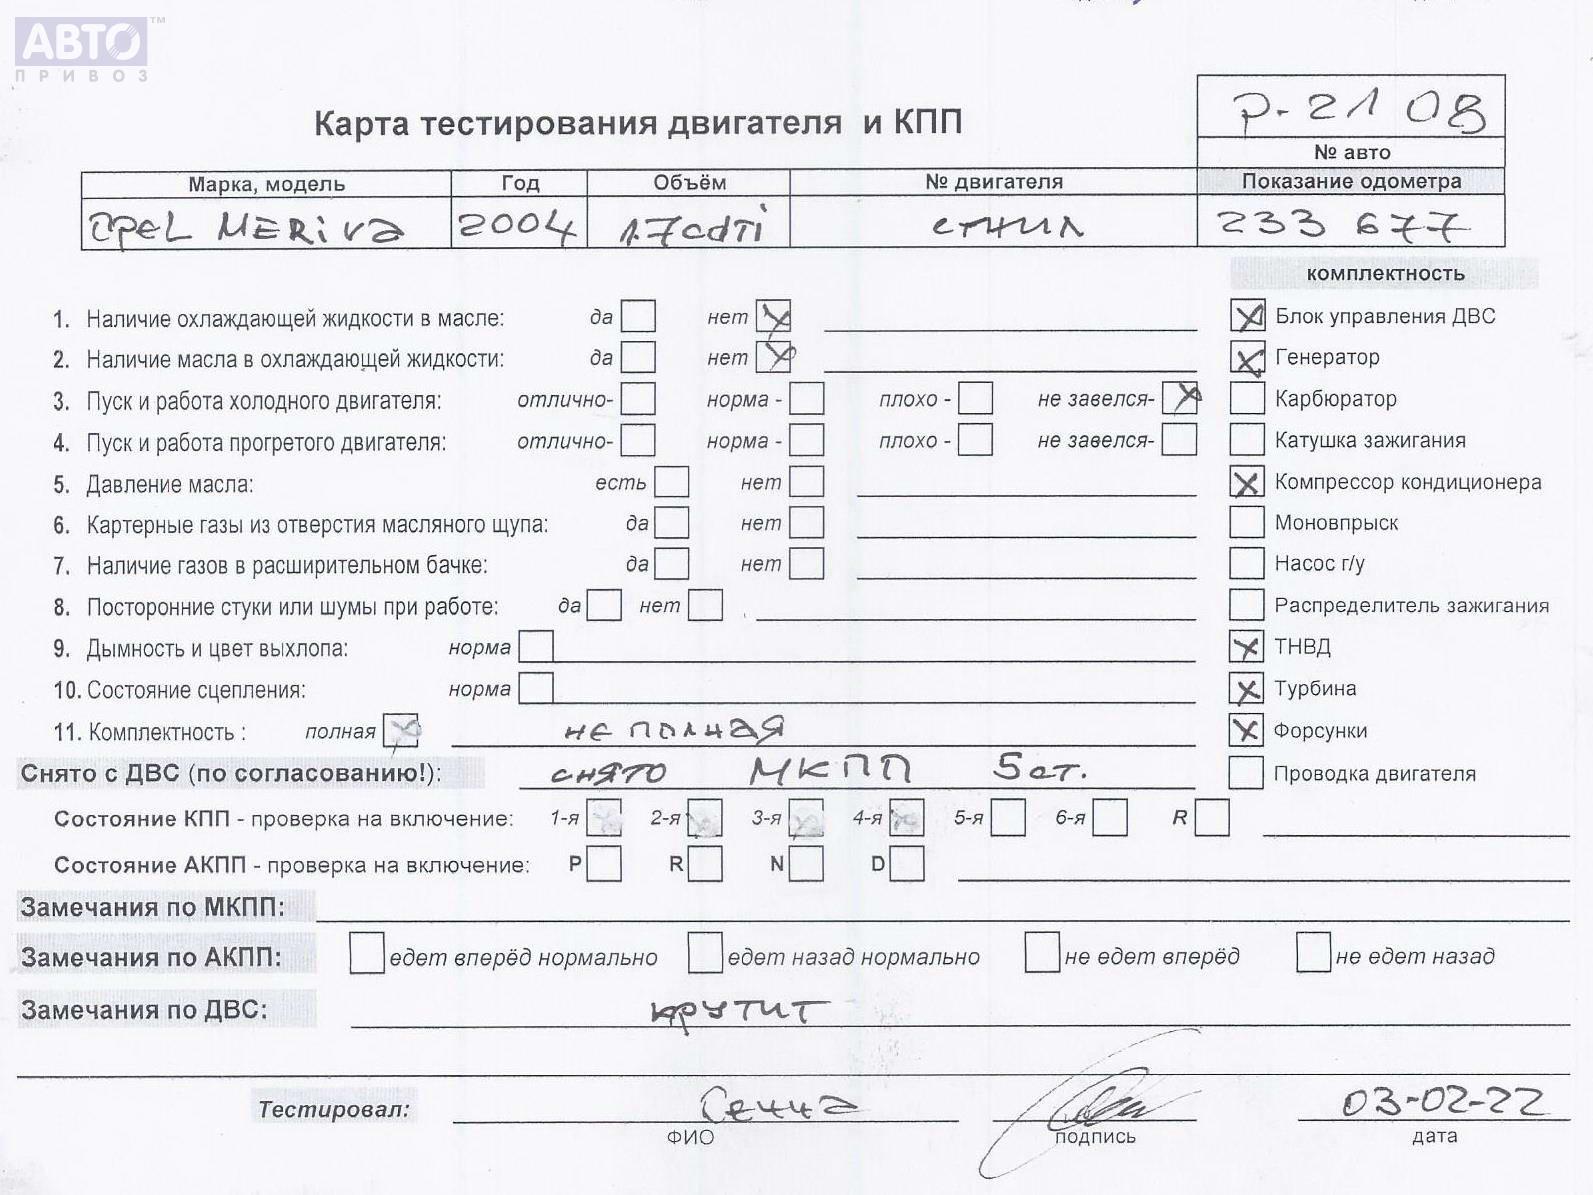 АВТО™
ПРИВОЗ
Р-2108
Карта тестирования двигателя и КПП
№ авто
Марка, модель Год Объём № двигателя Показание одометра
OPEL MERiVa 2004 1.7cdTi сгнил 233 677
комплектность
1. Наличие охлаждающей жидкости в масле: да нет Блок управления ДВС
2. Наличие масла в охлаждающей жидкости: да нет Генератор
3. Пуск и работа холодного двигателя: отлично- норма - плохо - не завелся- Карбюратор
4. Пуск и работа прогретого двигателя: отлично- норма - плохо - не завелся- Катушка зажигания
5. Давление масла: есть нет Компрессор кондиционера
6. Картерные газы из отверстия масляного щупа: да нет Моновпрыск
7. Наличие газов в расширительном бачке: да нет Насос г/у
8. Посторонние стуки или шумы при работе: да нет Распределитель зажигания
9. Дымность и цвет выхлопа: норма ТНВД
10. Состояние сцепления: норма Турбина
11. Комплектность : полная не полная Форсунки
Снято с ДВС (по согласованию!): снято МКПП 5ст. Проводка двигателя
Состояние КПП - проверка на включение: 1-я 2-я 3-я 4-я 5-я 6-я R
Состояние АКПП - проверка на включение: P R N D
Замечания по МКПП:
Замечания по АКПП: едет вперёд нормально едет назад нормально не едет вперёд не едет назад
Замечания по ДВС: крутит
Тестировал: 03-02-22
ФИО подпись дата